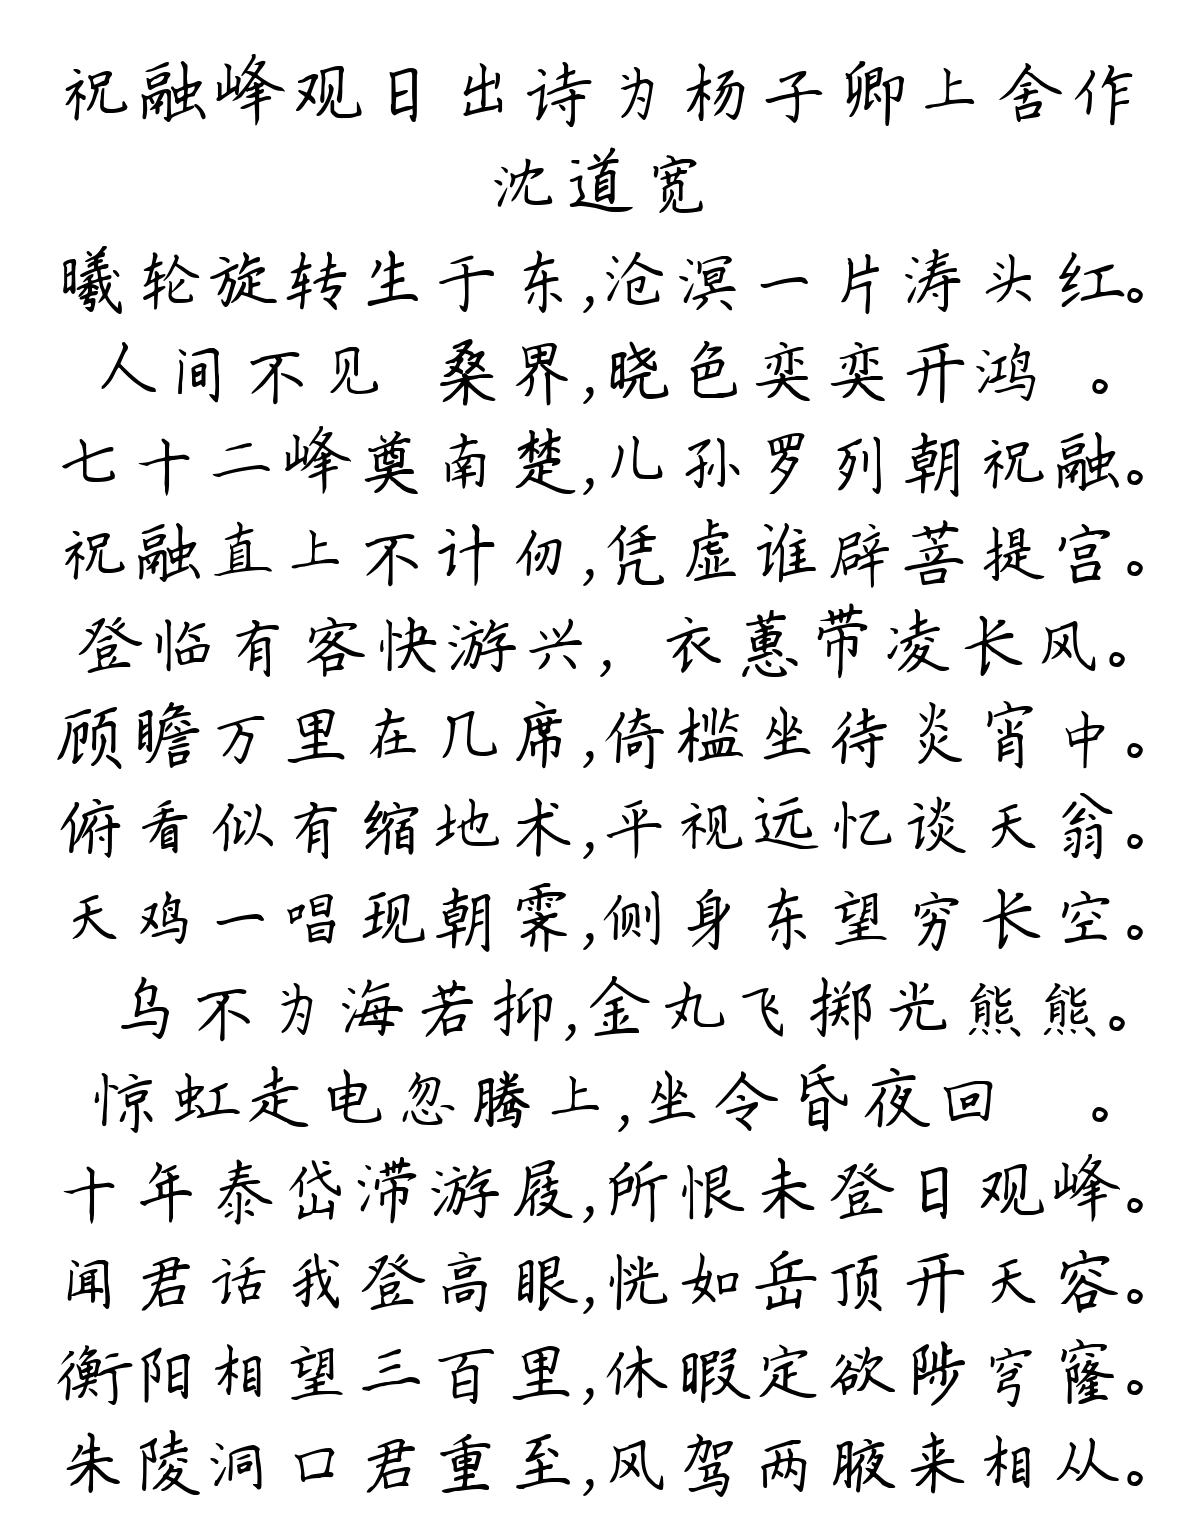 祝融峰观日出诗为杨子卿上舍作
沈道宽
曦轮旋转生于东,沧溟一片涛头红。
人间不见 桑界,晓色奕奕开鸿 。
七十二峰奠南楚,儿孙罗列朝祝融。
祝融直上不计仞,凭虚谁辟菩提宫。
登临有客快游兴, 衣蕙带凌长风。
顾瞻万里在几席,倚槛坐待炎宵中。
俯看似有缩地术,平视远忆谈天翁。
天鸡一唱现朝霁,侧身东望穷长空。
乌不为海若抑,金丸飞掷光熊熊。
惊虹走电忽腾上,坐令昏夜回 。
十年泰岱滞游屐,所恨未登日观峰。
闻君话我登高眼,恍如岳顶开天容。
衡阳相望三百里,休暇定欲陟穹窿。
朱陵洞口君重至,风驾两腋来相从。